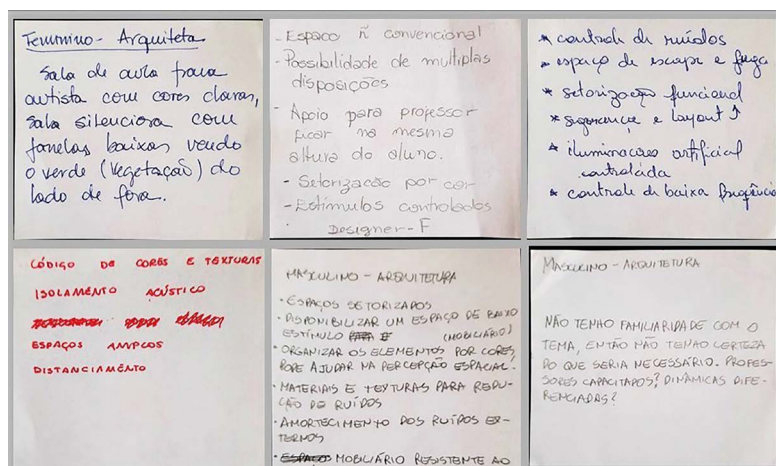 Feminino - Arquiteta
Sala de aula para
autista com cores claras,
sala silenciosa com
janelas baixas vendo
o verde (vegetação) do
lado de fora.
- Espaço ñ convencional
- Possibilidade de multiplas
disposições
- Apoio para professor
ficar na mesma
altura do aluno.
- Setorização por cor
- Estímulos controlados
Designer - F
* controle de ruídos
* espaço de escape e fuga
* setorização funcional
* segurança e layout ↑
* iluminação artificial
controlada
* controle de baixa frequência
CÓDIGO DE CORES E TEXTURAS
ISOLAMENTO ACÚSTICO
ESPAÇOS AMPLOS
DISTANCIAMENTO
MASCULINO - ARQUITETURA
• ESPAÇOS SETORIZADOS
• DISPONIBILIZAR UM ESPAÇO DE BAIXO
ESTÍMULO (MOBILIÁRIO)
• ORGANIZAR OS ELEMENTOS POR CORES,
PODE AJUDAR NA PERCEPÇÃO ESPACIAL.
• MATERIAIS E TEXTURAS PARA REDU-
ÇÃO DE RUÍDOS
• AMORTECIMENTO DOS RUÍDOS EX-
TERNOS
• MOBILIÁRIO RESISTENTE AO
MASCULINO - ARQUITETURA
NÃO TENHO FAMILIARIDADE COM O
TEMA, ENTÃO NÃO TENHO CERTEZA
DO QUE SERIA NECESSÁRIO. PROFES-
SORES CAPACITADOS? DINÂMICAS DIFE-
RENCIADAS?